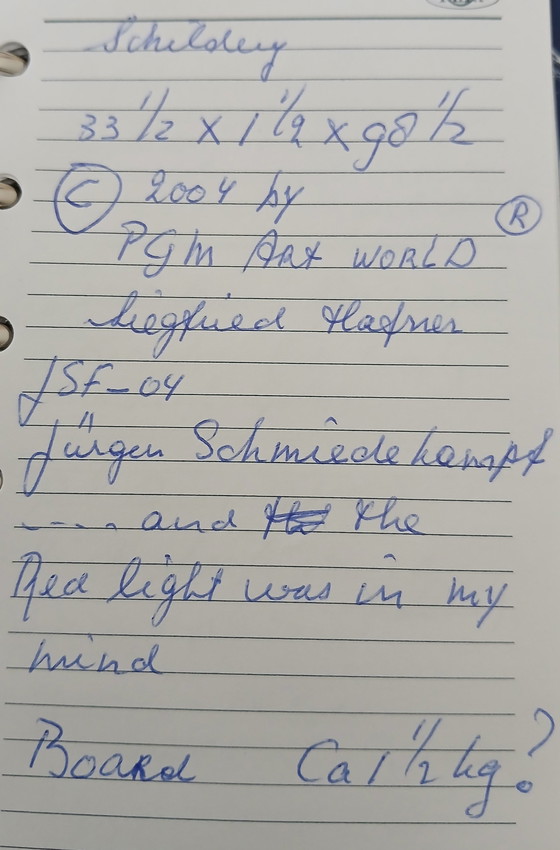 Schildery
33 1/2 x 1 1/2 x 98 1/2
© 2004 by
PGM Art WORLD ®
Siegfried Hafner
JSF-04
Jürgen Schmiedekampf
.... and the
Red light was in my
mind
Board Ca 1 1/2 kg?